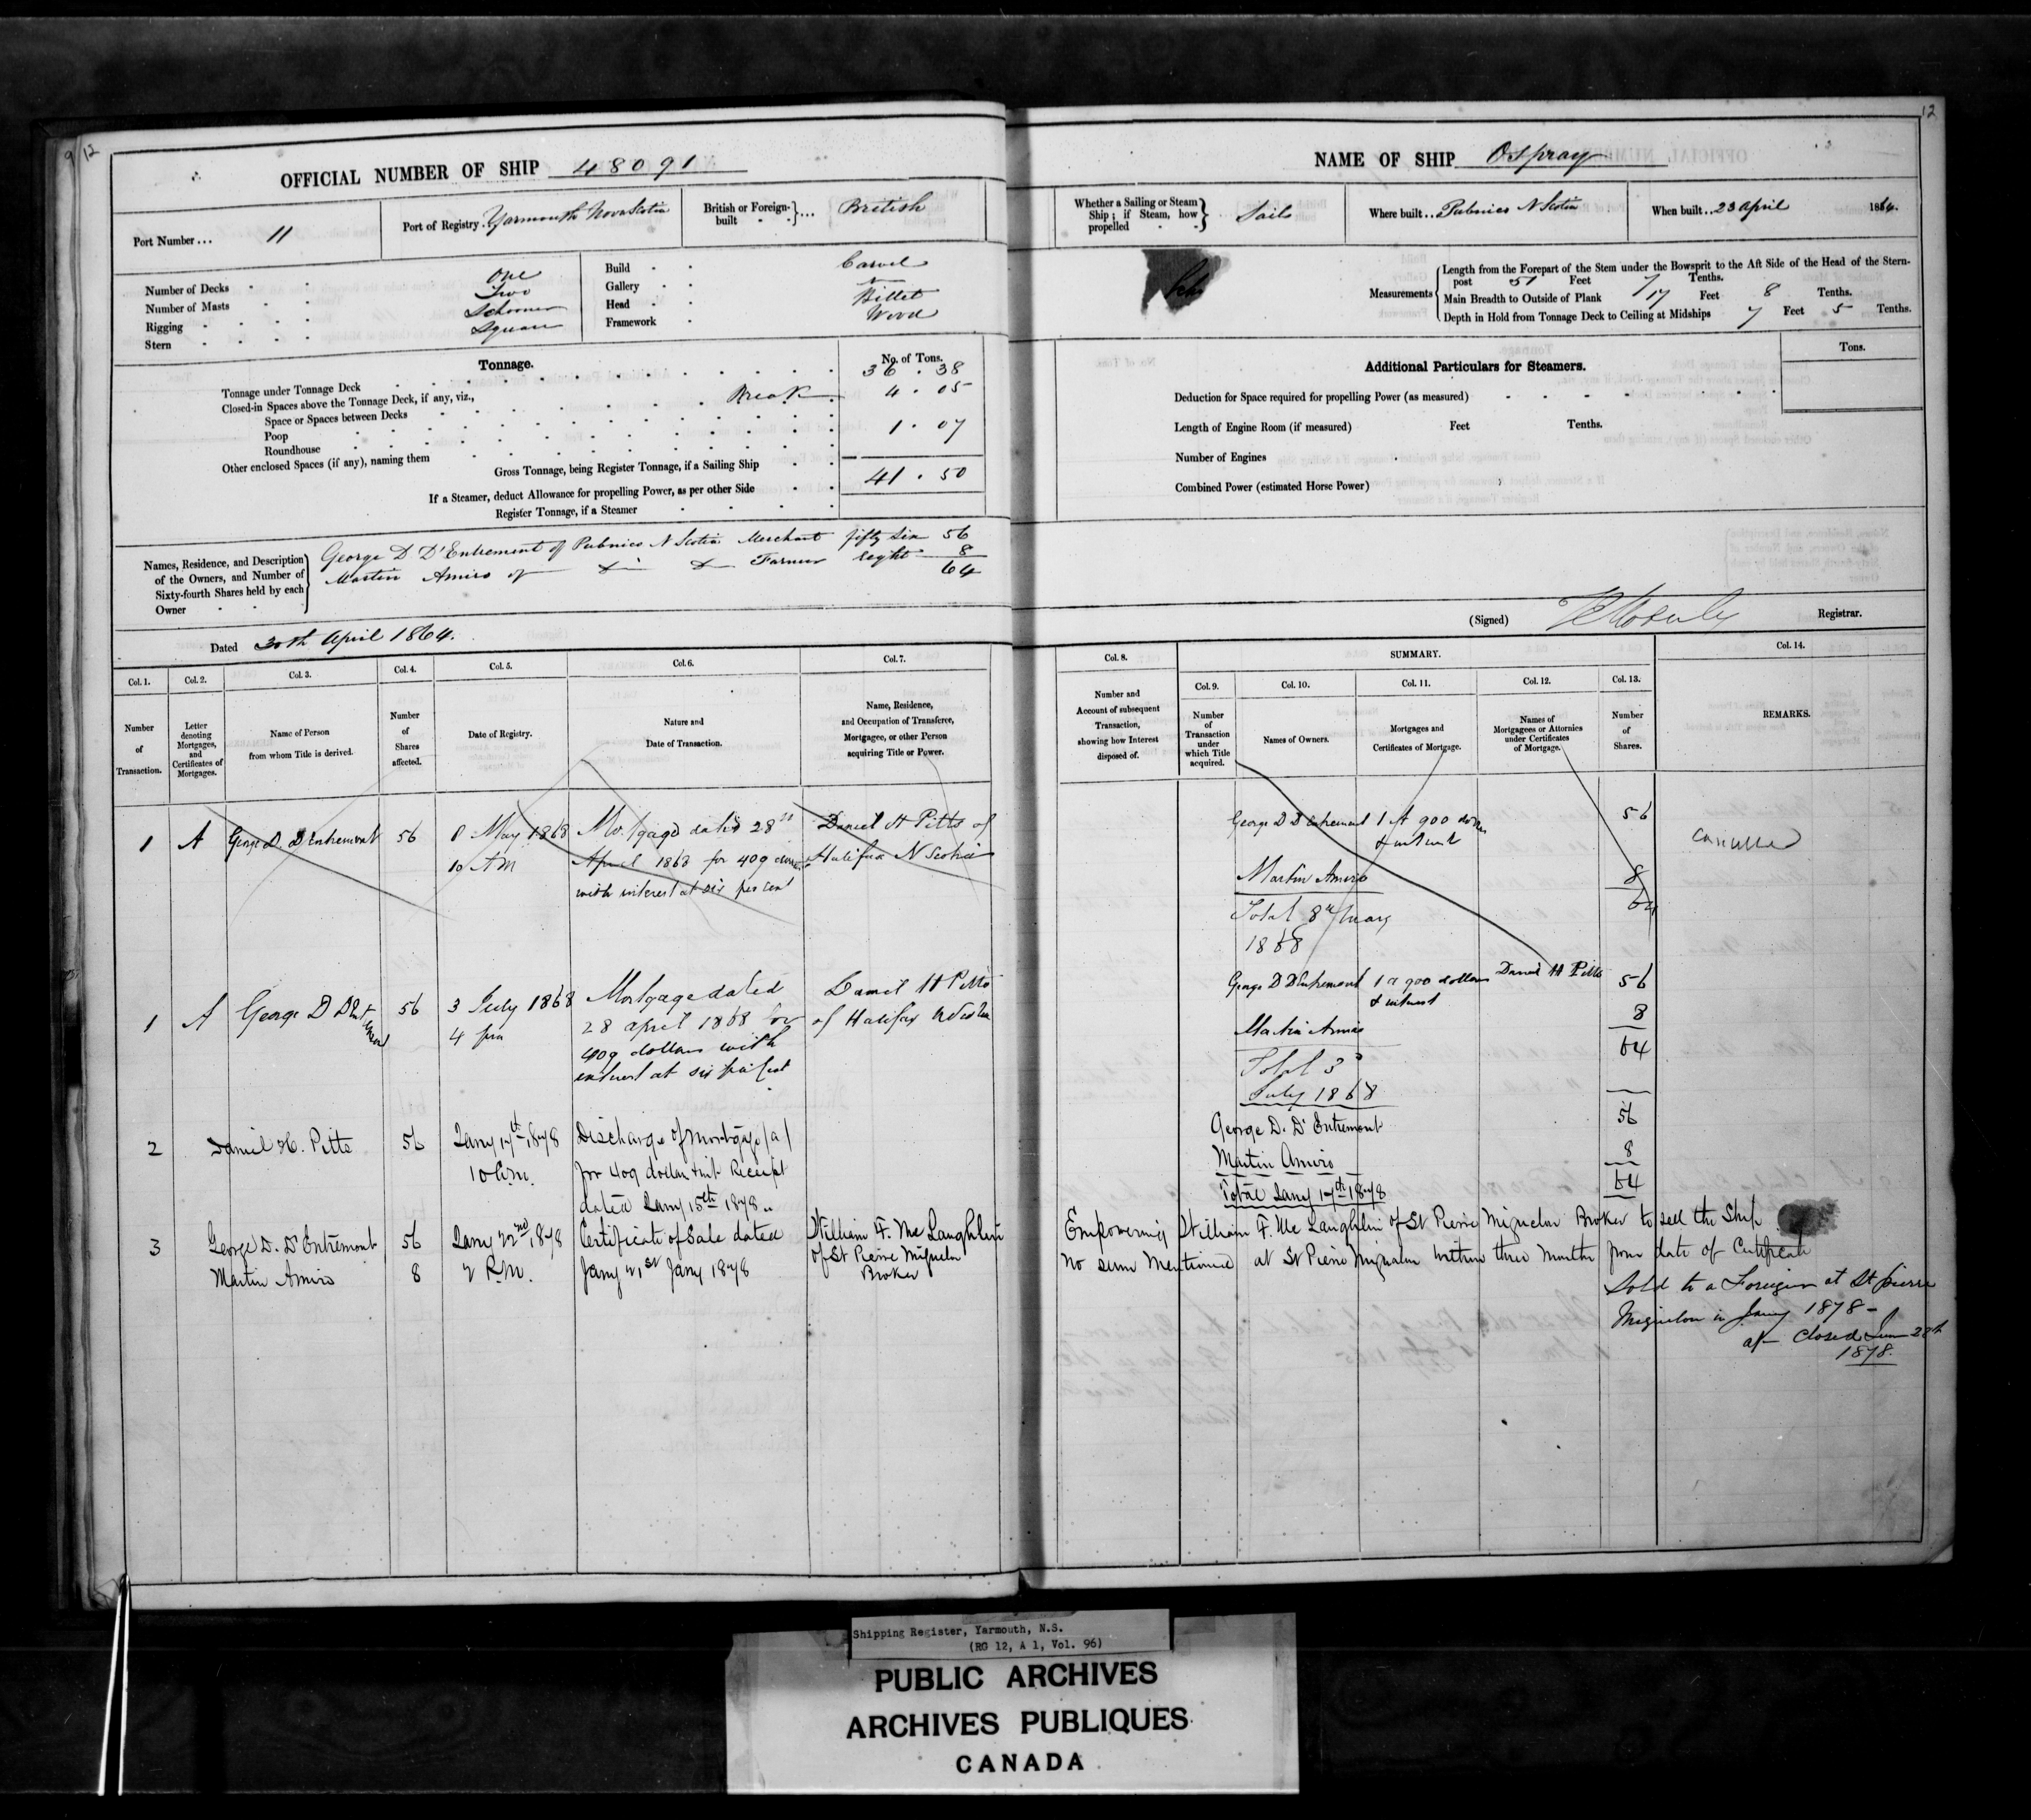 9/12
12
OFFICIAL NUMBER OF SHIP 48091
Port Number ... 11
Port of Registry. Yarmouth Nova Scotia
British or Foreign-built ... British
Number of Decks One
Number of Masts Two
Rigging Schooner
Stern Square
Build Carvel
Gallery
Head Billet
Framework Wood
Tonnage.
No. of Tons.
Tonnage under Tonnage Deck 36 . 38
Closed-in Spaces above the Tonnage Deck, if any, viz., Break 4 . 05
Space or Spaces between Decks
Poop 1 . 07
Roundhouse
Other enclosed Spaces (if any), naming them
Gross Tonnage, being Register Tonnage, if a Sailing Ship 41 . 50
If a Steamer, deduct Allowance for propelling Power, as per other Side
Register Tonnage, if a Steamer
Names, Residence, and Description of the Owners, and Number of Sixty-fourth Shares held by each Owner
George D D'Entremont of Pubnico N Scotia Merchant fifty six 56
Martin Amiro of do do Farmer eight 8
64
Dated 30th April 1864.
NAME OF SHIP Ospray
Whether a Sailing or Steam Ship; if Steam, how propelled Sails
Where built .. Pubnico N Scotia
When built .. 23 April 1864.
Measurements
Length from the Forepart of the Stem under the Bowsprit to the Aft Side of the Head of the Stern-
post 51 Feet 7 Tenths.
Main Breadth to Outside of Plank 17 Feet 8 Tenths.
Depth in Hold from Tonnage Deck to Ceiling at Midships 7 Feet 5 Tenths.
Additional Particulars for Steamers.
Tons.
Deduction for Space required for propelling Power (as measured)
Length of Engine Room (if measured) Feet Tenths.
Number of Engines
Combined Power (estimated Horse Power)
(Signed) Registrar.
Col. 1. Col. 2. Col. 3. Col. 4. Col. 5. Col. 6. Col. 7.
Number of Transaction.
Letter denoting Mortgages, and Certificates of Mortgages.
Name of Person from whom Title is derived.
Number of Shares affected.
Date of Registry.
Nature and Date of Transaction.
Name, Residence, and Occupation of Transferee, Mortgagee, or other Person acquiring Title or Power.
Col. 8. SUMMARY. Col. 14.
Col. 9. Col. 10. Col. 11. Col. 12. Col. 13.
Number and Account of subsequent Transaction, showing how Interest disposed of.
Number of Transaction under which Title acquired.
Names of Owners.
Mortgages and Certificates of Mortgage.
Names of Mortgagees or Attornies under Certificates of Mortgage.
Number of Shares.
REMARKS.
1 A George D. D'Entremont 56 8 May 1868 Mortgage dated 28th Daniel H Pitts of
10 AM April 1868 for 409 dollars Halifax N Scotia
with interest at six per cent
George D D'Entremont 1 A 900 dollars 56
& interest
Martin Amiro 8
Total 8th May 64
1868
cancelled
1 A George D D'Entremont 56 3 July 1868 Mortgage dated Daniel H Pitts
4 pm 28 april 1868 for of Halifax N Scotia
409 dollars with
interest at six per cent
George D D'Entremont 1 a 900 dollars Daniel H Pitts 56
& interest
Martin Amiro 8
64
Total 3d
July 1868
2 Daniel H. Pitts 56 Jany 17th 1878 Discharge of mortgage (a)
10 a.m. for 409 dollars & int Receipt
dated Jany 15th 1878
George D. D'Entremont 56
Martin Amiro 8
Total Jany 17th 1878 64
3 George D. D'Entremont 56 Jany 22nd 1878 Certificate of Sale dated William F. McLaughlin
Martin Amiro 8 2 P.M. Jany 21st Jany 1878 of St Pierre Miquelon
Broker
Empowering William F. McLaughlin of St Pierre Miquelon Broker to sell the Ship
No sum Mentioned at St Pierre Miquelon within three Months from date of Certificate
Sold to a Foreigner at St pierre
Miquelon in Jany 1878 -
Closed 28th
1878.
Shipping Register, Yarmouth, N.S.
(RG 12, A 1, Vol. 96)
PUBLIC ARCHIVES
ARCHIVES PUBLIQUES
CANADA